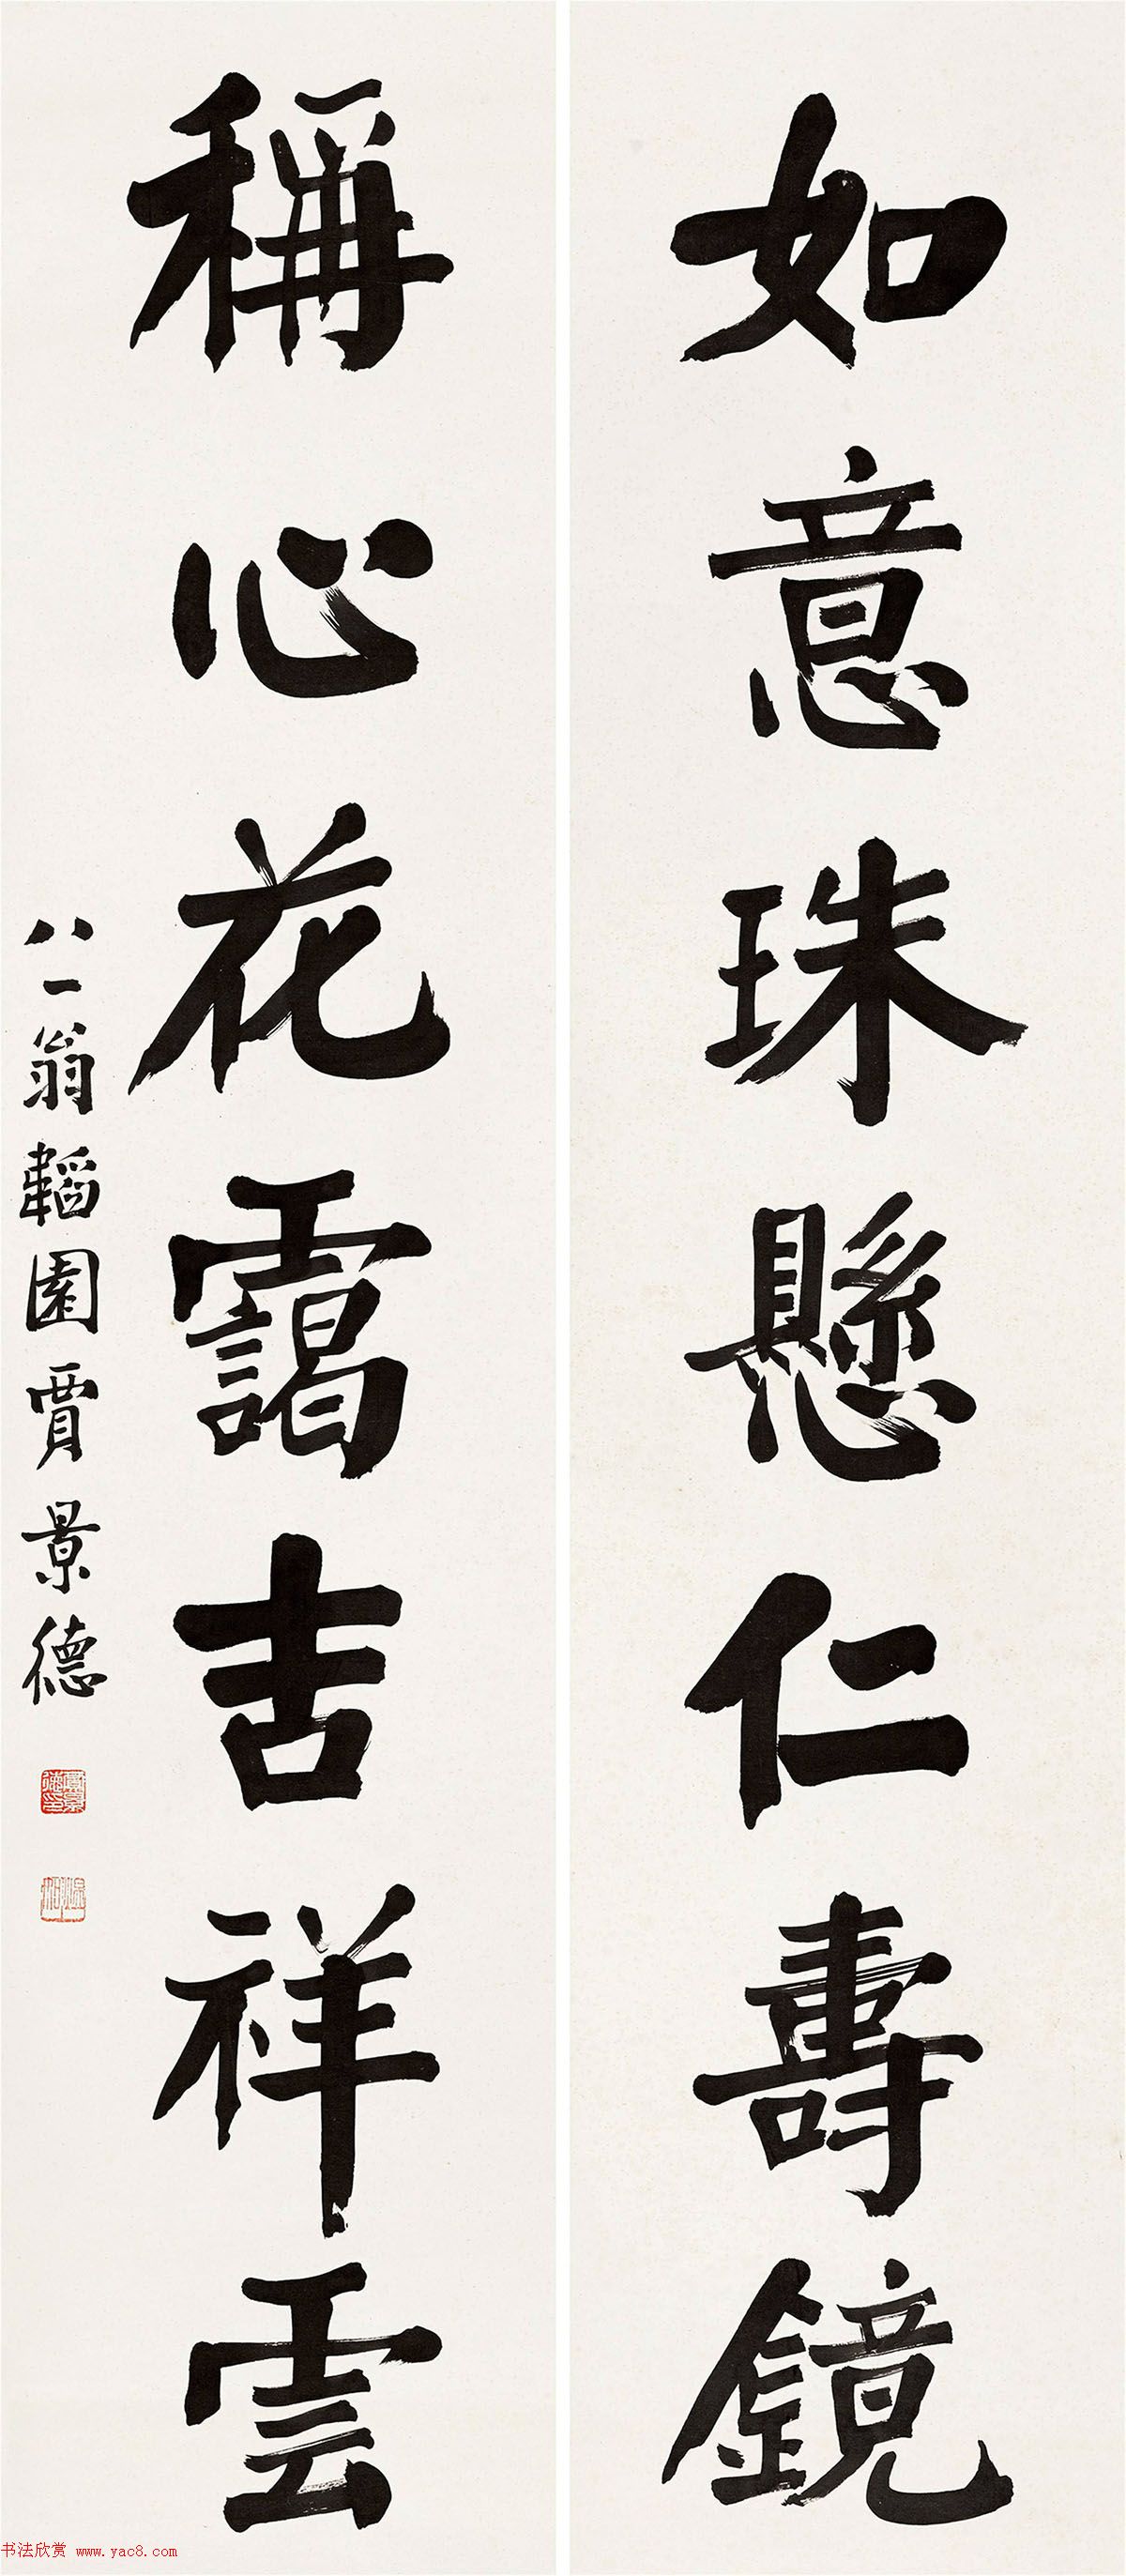 如意珠懸仁壽鏡
稱心花靄吉祥雲
八一翁韜園賈景德
賈景德印
书法欣赏 www.yac8.com